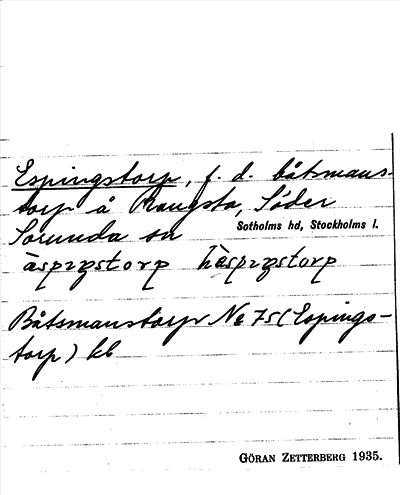 Espingstorp, f. d. båtsmans-
torp å Rangsta, Söder
Sorunda sn Sotholms hd, Stockholms l.
äspıŋstorp häspıŋstorp
Båtsmanstorp No 75 (Espings-
torp) kb
GÖRAN ZETTERBERG 1935.